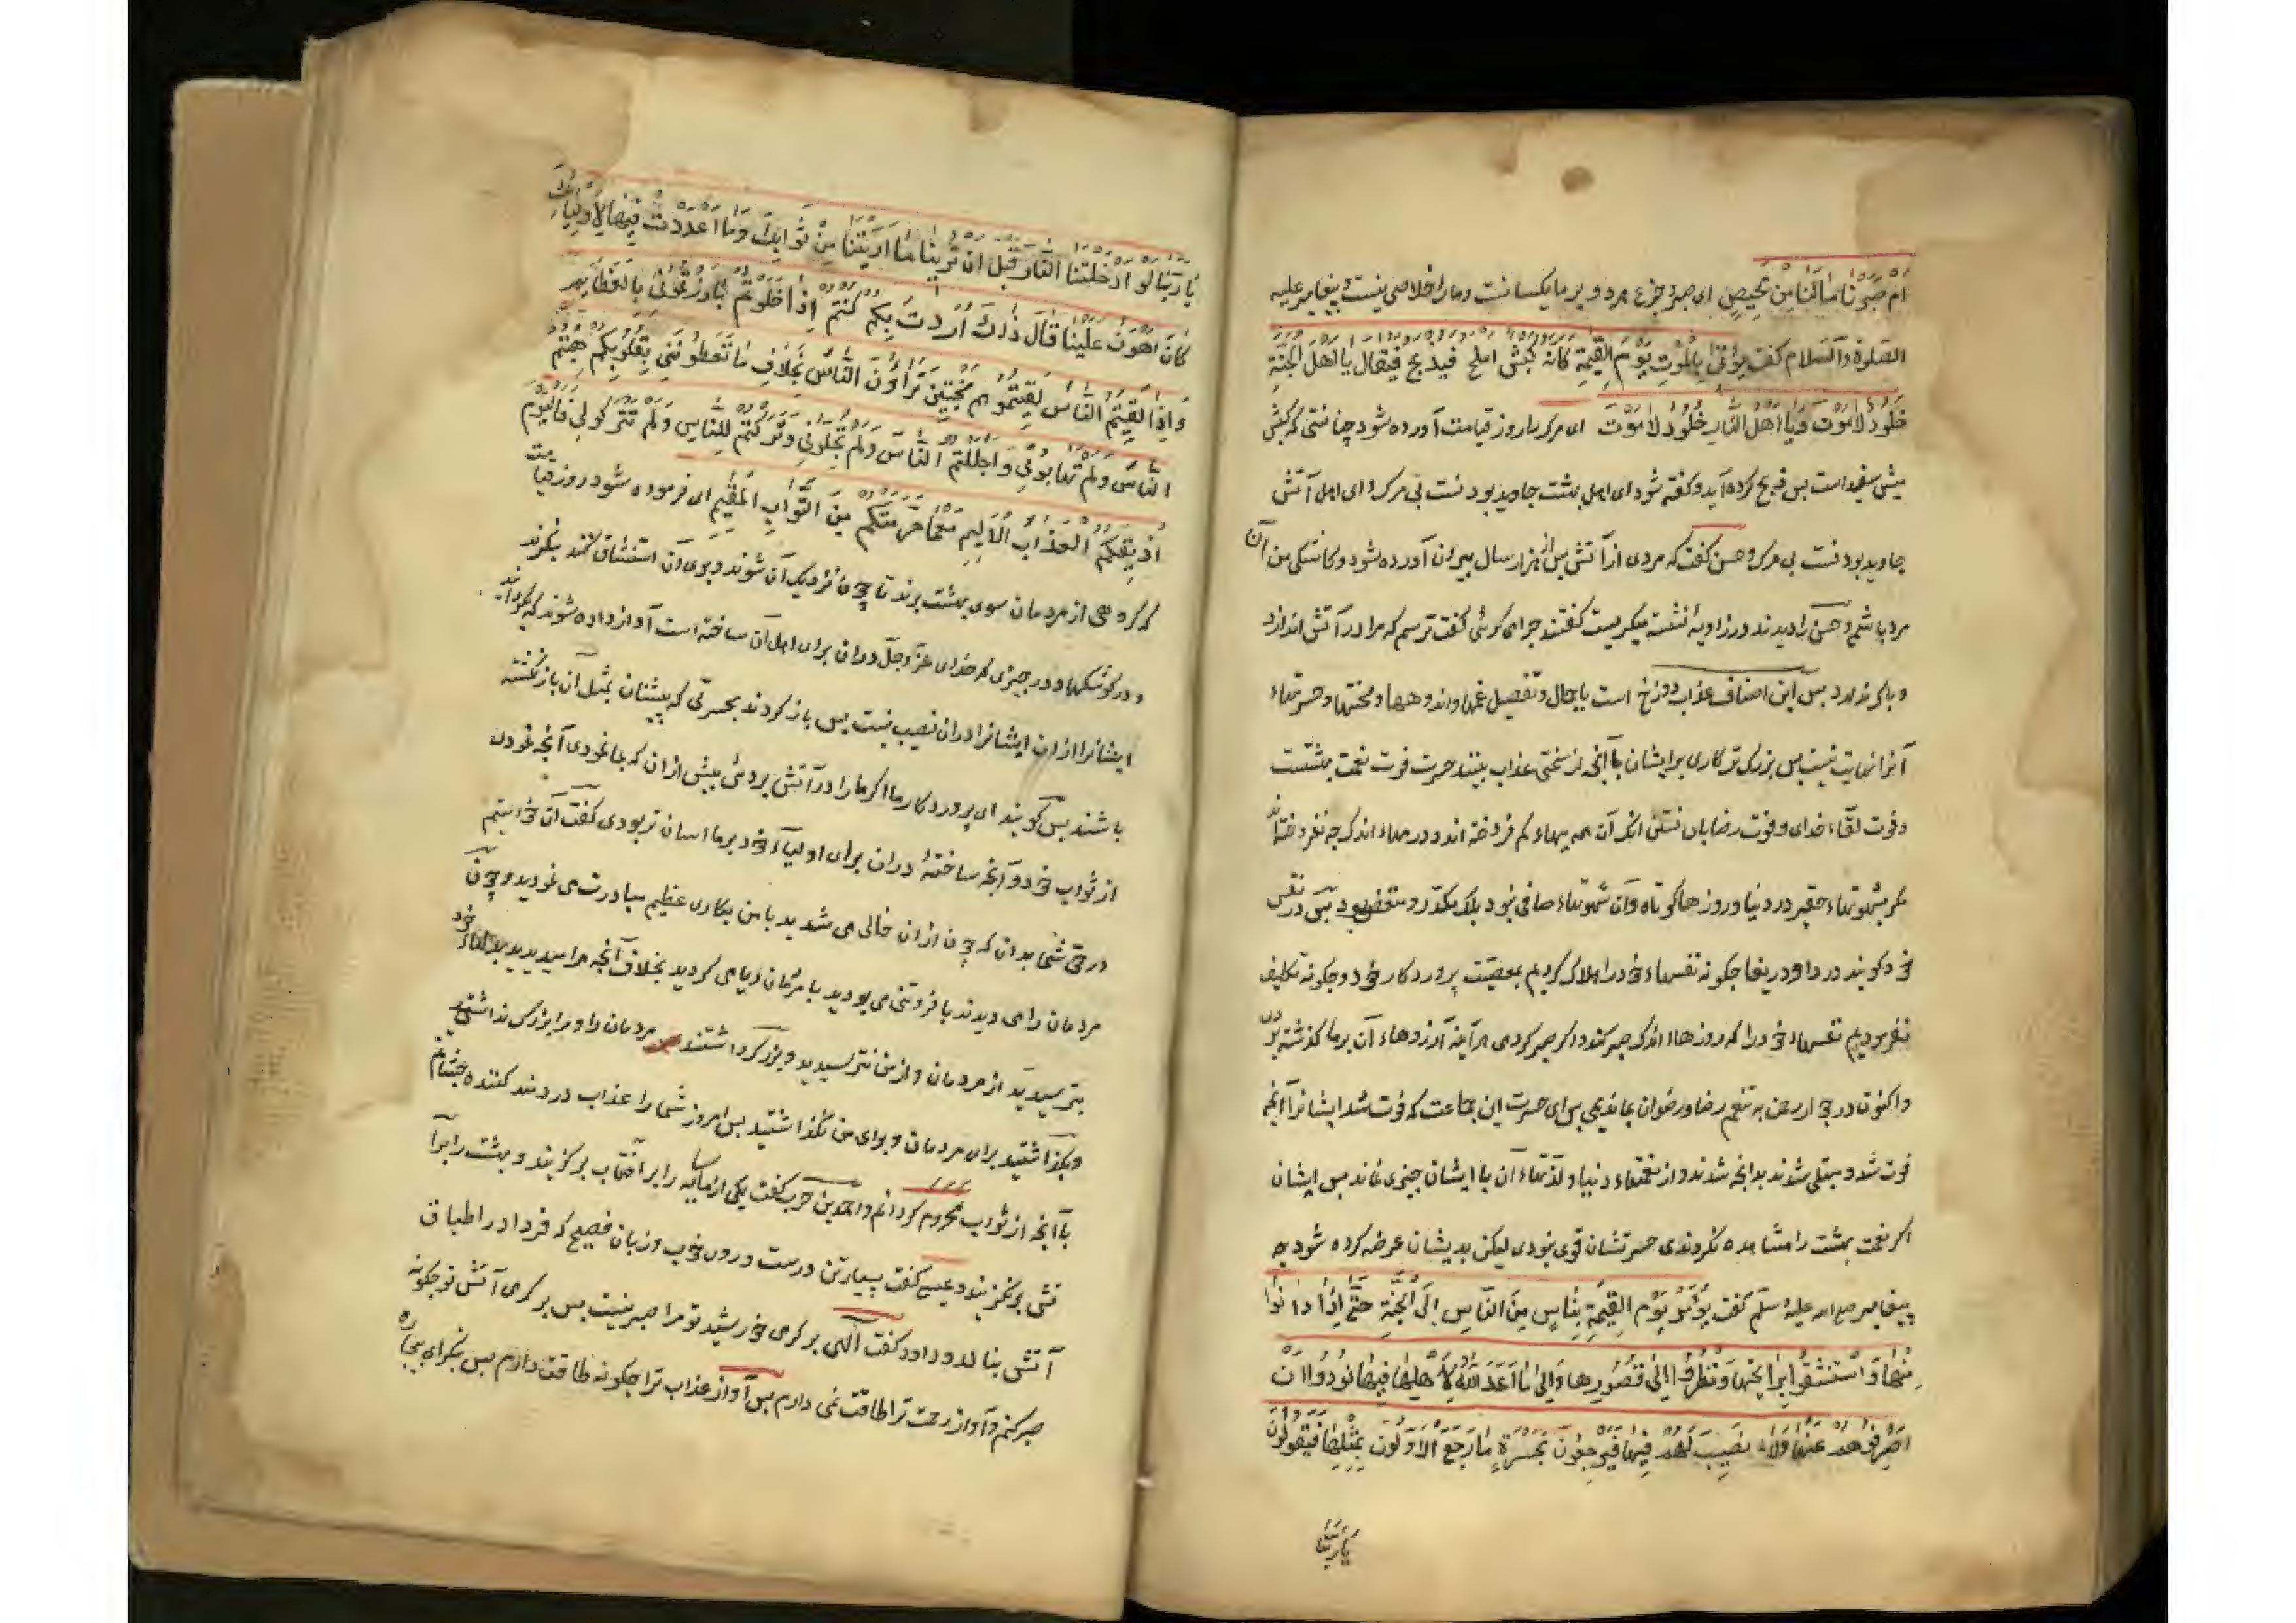 ام صَبَرْنَا مَا لَنَا مِنْ مَحِیصٍ ای صبر و جزع هر دو بر ما یکسانست و ما را خلاصی نیست و پیغامبر علیه
الصلوة والسّلام کفت یُؤْتَیٰ بِالْمَوْتِ یَوْمَ الْقِیٰمَةِ کَاَنَّهُ کَبْشٌ املح فیذبح فَیُقَالُ یَا اَهْلَ الْجَنَّةِ
خُلُودٌ لَا مَوْتَ وَیَا اَهْلَ النَّارِ خُلُودٌ لَا مَوْتَ ای مرک را روز قیامت آورده شود چنانستی که کبش
میش سفید است بس ذبح کرده آید و کفته شود ای اهل بهشت جاوید بودنست بی مرک و ای اهل آتش
جاوید بودنست بی مرک و حسن کفت که مردی از آتش بس از هزار سال بیرون آورده شود و کاشکی من آن
مرد باشم و حسن را دیدند در زاویه نشسته میکریست کفتند چرا می کرئی کفت ترسم که مرا در آتش اندازد
و باک ندارد بس این اصناف عذاب دوزخ است باجمال و تفصیل غمها و اندوهها و محنتها و حسرتهاء
آنرا نهایت نیست بس بزرک تر کاری بر ایشان باآنچه از سختی عذاب بینند حسرت فوت نعمت بهشتست
و فوت لقاء خدای و فوت رضا با آنکه آن همه ببهاء کم فروخته اند و در مهاء اندک چه نفروخته‌اند
مکر بشهوتهاء حقیر در دنیا و روزهاء کوتاه و آن شهوتهاء صافی نبود بلک مکدر و منغص بود بس در نفس
خود کویند دردا و دریغا چکونه نفسهاء خود را هلاک کردیم بمعصیت پروردکار خود و چکونه تکلیف
نفرمودیم نفسهاء خود را که روزهاء اندک صبر کند و اکر صبر کردی هرآینه آرزوهاء آن برما کذشته بودی
و اکنون در جوار رحمن به تنعم رضا و رضوان بماندیمی بس ای حسرت این جماعت که فوت شد ایشانرا آنچه
فوت شد و مبتلی شدند بدانچه شدند و از نعمتهاء دنیا و لذتهاء آن با ایشان چیزی نماند بس ایشان
اکر نعمت بهشت را مشاهده نکردندی حسرتشان قوی نبودی لیکن بدیشان عرضه کرده شود چه
پیغامبر صلی الله علیه وسلّم کفت یُؤْمَرُ یَوْمَ الْقِیٰمَةِ بِنَاسٍ مِنَ النَّاسِ اِلَی الْجَنَّةِ حَتّٰی اِذَا دَانَوْا
مِنْهَا وَاسْتَنْشَقُوا رَائِحَتَهَا وَنَظَرُوا اِلٰی قُصُورِهَا وَاِلٰی مَا اَعَدَّ اللّٰهُ لِاَهْلِهَا فِیهَا نُودُوا اَنْ
اصْرِفُوهُمْ عَنْهَا وَلَا نَصِیبَ لَهُمْ فِیهَا فَیَرْجِعُونَ بِحَسْرَةٍ مَا رَجَعَ الْاَوَّلُونَ بِمِثْلِهَا فَیَقُولُونَ
یَا رَبَّنَا
یَا رَبَّنَا لَوْ اَدْخَلْتَنَا النَّارَ قَبْلَ اَنْ تُرِیَنَا مَا اَرَیْتَنَا مِنْ ثَوَابِکَ وَمَا اَعْدَدْتَ فِیهَا لِاَوْلِیَائِکَ
کَانَ اَهْوَنَ عَلَیْنَا قَالَ ذَاکَ اَرَدْتُ بِکُمْ کُنْتُمْ اِذَا خَلَوْتُمْ بَارَزْتُمُونِی بِالْعَظَایِمِ
وَاِذَا لَقِیتُمُ النَّاسَ لَقِیتُمُوهُمْ مُخْبِتِینَ تُرَاؤُنَ النَّاسَ بِخَلَافِ مَا تُعْطُونَنِی بِقُلُوبِکُمْ هِبْتُمُ
النَّاسَ وَلَمْ تَهَابُونِی وَاَجْلَلْتُمُ النَّاسَ وَلَمْ تُجِلُّونِی وَتَرَکْتُمْ لِلنَّاسِ وَلَمْ تَتْرُکُوا لِی فَالْیَوْمَ
اُذِیقُکُمُ الْعَذَابَ الْاَلِیمَ مَعَمَا حَرَّمْتُکُمْ مِنَ الثَّوَابِ الْمُقِیمِ ای فرموده شود روز قیامت
که کروهی از مردمان سوی بهشت برند تا چون نزدیک آن شوند و بوی آن استنشاق کنند بنکرند
و در کوشکها و در چیزی که خدای عزّ و جلّ در آن برای اهل آن ساخته است آواز داده شوند که بکردانید
ایشانرا از آن ایشانرا در آن نصیب نیست بس باز کردند بحسرتی که پیشنیان بمثل آن بازنکشته
باشند بس کویند ای پروردکار ما اکر ما را در آتش بردی پیش از آن که بما نمودی آنچه نمودی
از ثواب خود و آنچه ساختهٔ در آن برای اولیاء خود بر ما آسان تر بودی کفت آن خواستم
در حق شما بدان که چون از آن خالی می شدید با من بکاری عظیم مبادرت می نمودید و چون
مردمان را می دیدند با فروتنی می بودید با مردمان ریا می کردید بخلاف آنچه مرا میدیدید بدلهاء خود
بترسیدید از مردمان و از من نترسیدید و بزرک داشتند مردمان را و مرا بزرک نداشتید
و بکذاشتید برای مردمان و برای من نکذاشتید بس امروز شما را عذاب دردمند کننده بچشانم
باآنچه از ثواب محروم کردانم و احمد بن حرب کفت یکی از ما سایه را بر آفتاب برکزیند و بهشت را بر آ
تش برنکزیند و عیسی کفت بسیار تن درست و روی خوب و زبان فصیح که فردا در اطباق
آتش بنالد و داود کفت الٓهی بر کرمی خورشید تو مرا صبر نیست بس بر کرمی آتش تو چکونه
صبر کنم و آواز رحمت ترا طاقت نمی دارم بس آواز عذاب ترا چکونه طاقت دارم بس بنکر ای بیچاره